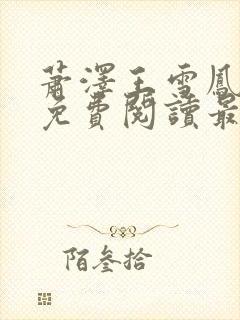 蕭澤王雪鳳
免費閱讀最
陌叁拾